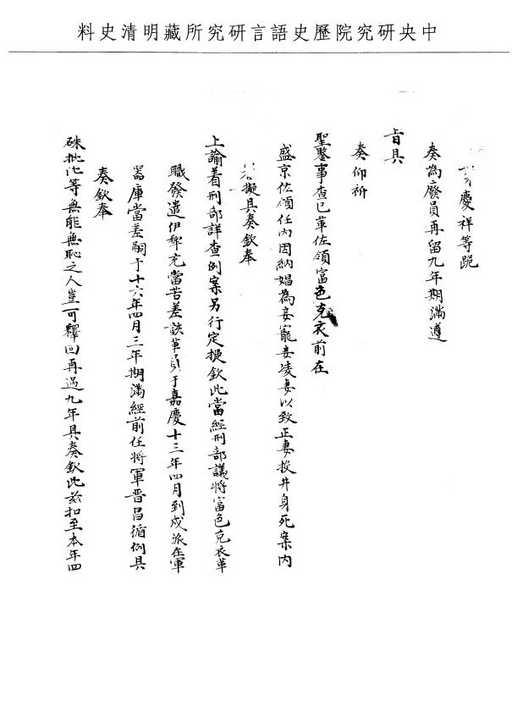 中央研究院歷史語言研究所藏明清史料
慶祥等跪
奏為廢員再留九年期滿遵
旨具
奏仰祈
聖鑒事查已革佐領富色克衣前在
盛京佐領任內因納娼為妾寵妾凌妻以致正妻投井身死案內
擬具奏欽奉
上諭着刑部詳查例案另行定擬欽此當經刑部議將富色克衣革
職發遣伊犁充當苦差該革員于嘉慶十三年四月到戍派在軍
器庫當差嗣于十六年四月三年期滿經前任將軍晉昌循例具
奏欽奉
硃批此等無能無恥之人豈可釋回再過九年具奏欽此茲扣至本年四